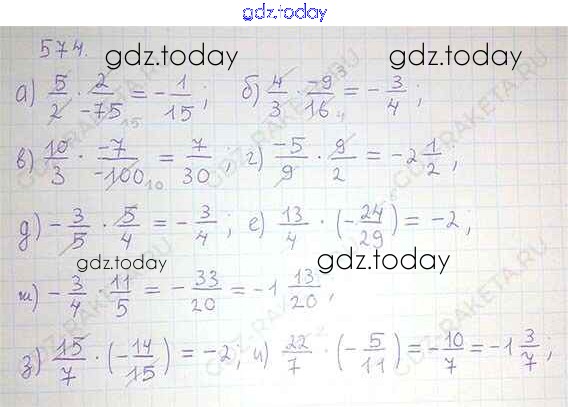 gdz.today
574.
gdz.today gdz.today
а) 5/2 · 2/-75 15 = -1/15; б) 4/3 · -9 3/16 4 = -3/4;
в) 10/3 · -7/-100 10 = 7/30, г) -5/9 · 9/2 = -2 1/2;
д) -3/5 · 5/4 = -3/4; е) 13/4 · (-24/29) = -2;
gdz.today gdz.today
ж) -3/4 · 11/5 = -33/20 = -1 13/20;
з) 15/7 · (-14/15) = -2; и) 22/7 · (-5/11) = -10/7 = -1 3/7;
gdz.today gdz.today
GDZ-RAKETA.RU